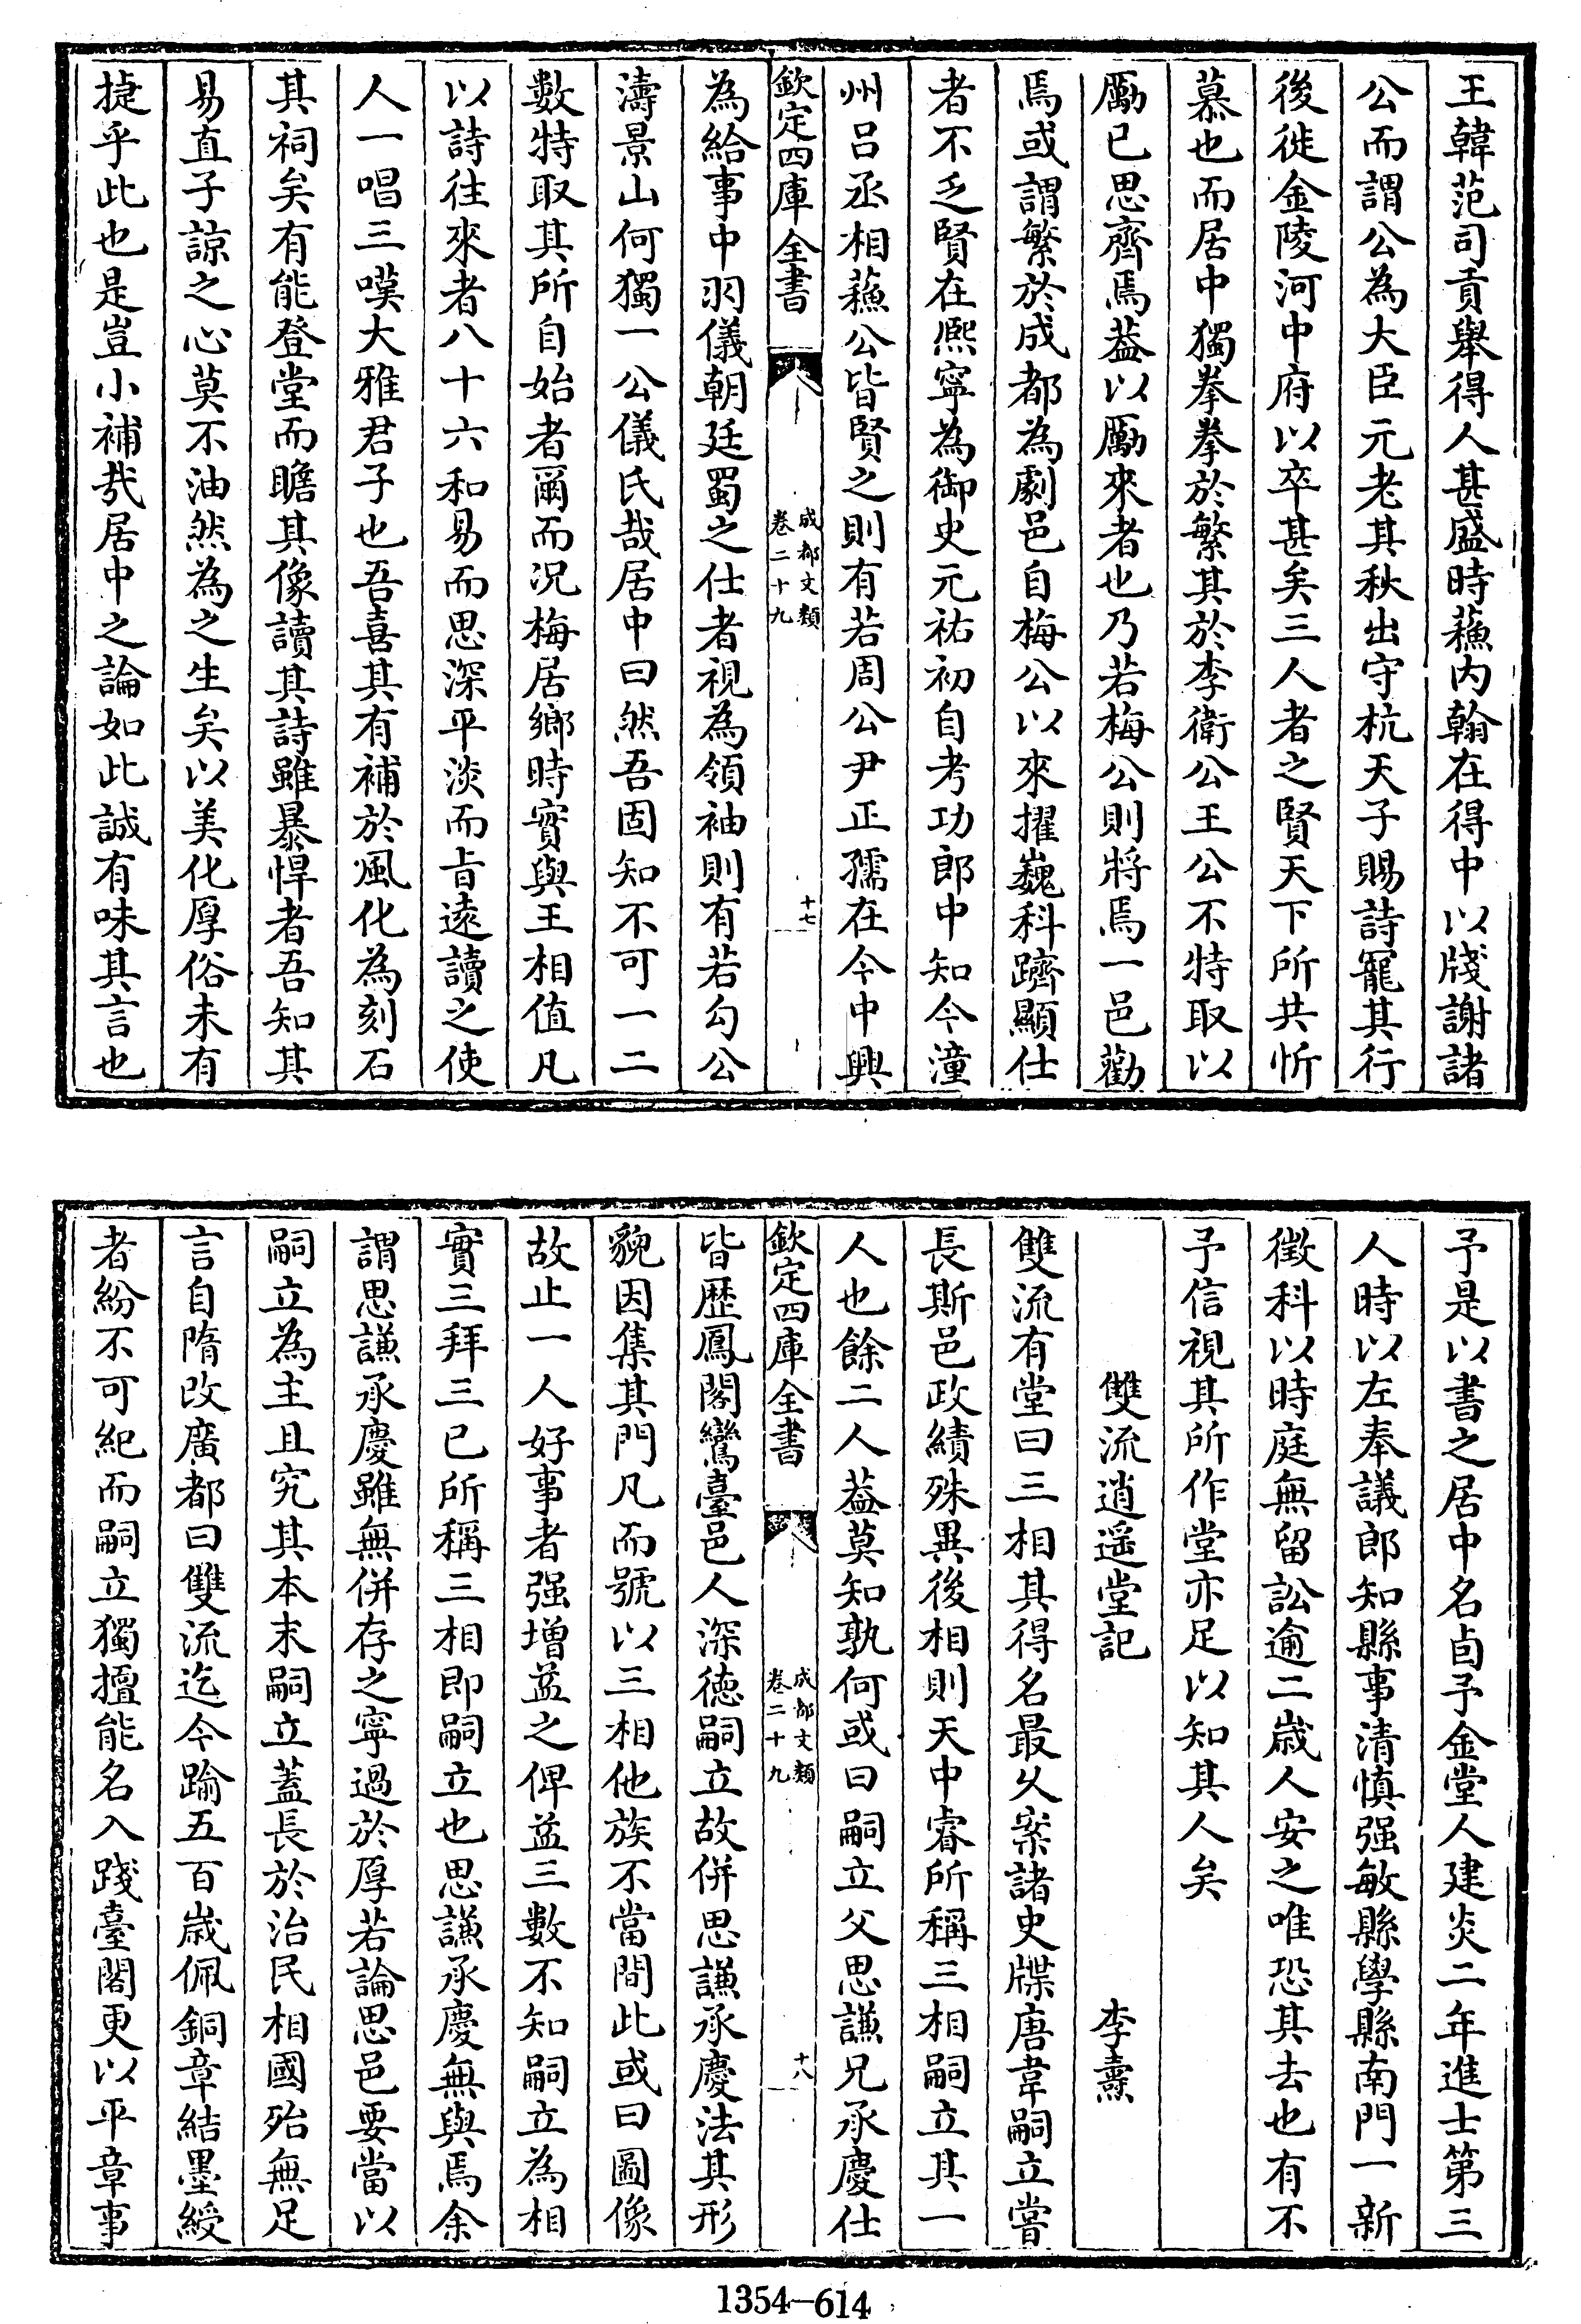 王韓范司貢舉得人甚盛時蘓内翰在得中以牋謝諸
公而謂公為大臣元老其秋出守杭天子賜詩寵其行
後徙金陵河中府以卒甚矣三人者之賢天下所共忻
慕也而居中獨拳拳於繁其於李衛公王公不特取以
勵已思齊焉葢以勵來者也乃若梅公則將焉一邑勸
焉或謂繁於成都為劇邑自梅公以來擢巍科躋顯仕
者不乏賢在熈寧為御史元祐初自考功郎中知今潼
州吕丞相蘓公皆賢之則有若周公尹正孺在今中興
欽定四庫全書
成都文類
卷二十九
十七
為給事中羽儀朝廷蜀之仕者視為領袖則有若勾公
濤景山何獨一公儀氏哉居中曰然吾固知不可一二
數特取其所自始者爾而况梅居鄉時實與王相值凡
以詩往來者八十六和易而思深平淡而㫖遠讀之使
人一唱三嘆大雅君子也吾喜其有補於風化為刻石
其祠矣有能登堂而瞻其像讀其詩雖暴悍者吾知其
易直子諒之心莫不油然為之生矣以美化厚俗未有
捷乎此也是豈小補哉居中之論如此誠有味其言也
予是以書之居中名卣予金堂人建炎二年進士第三
人時以左奉議郎知縣事清慎强敏縣學縣南門一新
徴科以時庭無留訟逾二歳人安之唯恐其去也有不
予信視其所作堂亦足以知其人矣
雙流逍遥堂記
李燾
雙流有堂曰三相其得名最乆案諸史牒唐韋嗣立嘗
長斯邑政績殊異後相則天中睿所稱三相嗣立其一
人也餘二人葢莫知孰何或曰嗣立父思謙兄承慶仕
欽定四庫全書
成都文類
卷二十九
十八
皆歴鳳閣鸞臺邑人深徳嗣立故併思謙承慶法其形
貌因集其門凡而號以三相他族不當間此或曰圖像
故止一人好事者强增益之俾益三數不知嗣立為相
實三拜三已所稱三相即嗣立也思謙承慶無與焉余
謂思謙承慶雖無併存之寧過於厚若論思邑要當以
嗣立為主且究其本末嗣立蓋長於治民相國殆無足
言自隋改廣都曰雙流迄今踰五百歳佩銅章結墨綬
者紛不可紀而嗣立獨擅能名入踐臺閣更以平章事
1354-614